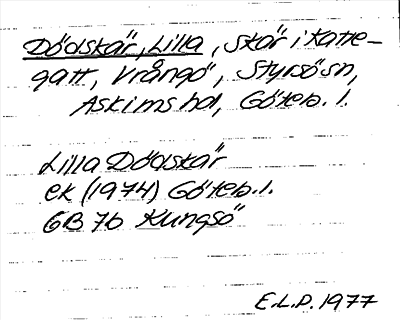 Dödskär, Lilla, skär i Katte-
gatt, Vrångö, Styrsö sn,
Askims hd, Göteb. l.
Lilla Dödskär
ek (1974) Göteb. l.
6B 7b Kungsö
E.L.P. 1977